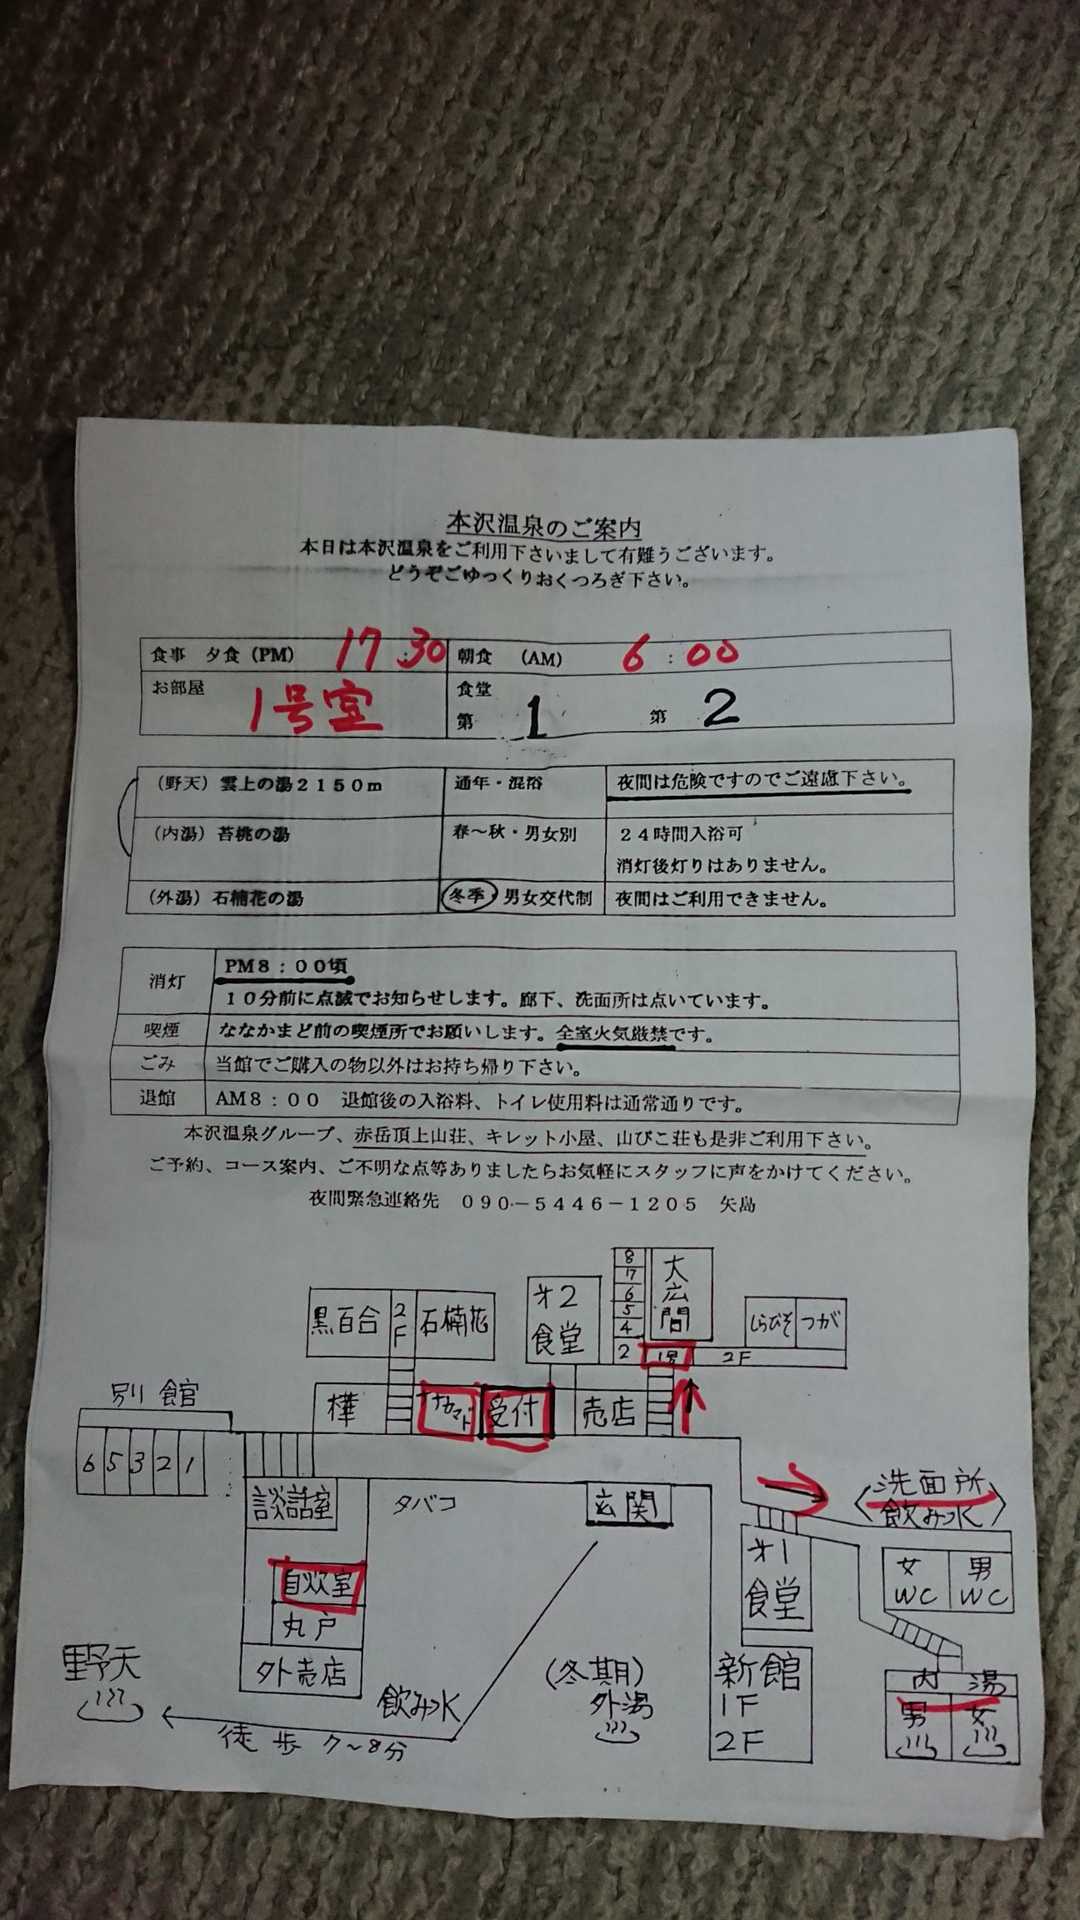 本沢温泉のご案内
本日は本沢温泉をご利用下さいまして有難うございます。
どうぞごゆっくりおくつろぎ下さい。
食事 夕食(PM) 17:30 朝食 (AM) 6:00
お部屋 1号室 食堂 第 1 第 2
(野天)雲上の湯2150m 通年・混浴 夜間は危険ですのでご遠慮下さい。
(内湯)苔桃の湯 春~秋・男女別 24時間入浴可
消灯後灯りはありません。
(外湯)石楠花の湯 冬季・男女交代制 夜間はご利用できません。
消灯 PM8:00頃
10分前に点滅でお知らせします。廊下、洗面所は点いています。
喫煙 ななかまど前の喫煙所でお願いします。全室火気厳禁です。
ごみ 当館でご購入の物以外はお持ち帰り下さい。
退館 AM8:00 退館後の入浴料、トイレ使用料は通常通りです。
本沢温泉グループ、赤岳頂上山荘、キレット小屋、山びこ荘も是非ご利用下さい。
ご予約、コース案内、ご不明な点等ありましたらお気軽にスタッフに声をかけてください。
夜間緊急連絡先 090-5446-1205 矢島
黒百合 2F 石楠花
才2食堂
8 7 6 5 4 2
大広間
1号
2F
しらびそ つが
別館
6 5 3 2 1
樺 ナナカマド 受付 売店
談話室
タバコ
玄関
〈洗面所
飲み水〉
才1食堂
女WC 男WC
自炊室
丸戸
外売店
野天
飲み水
徒歩 7~8分
(冬期)
外湯
新館
1F
2F
内湯
男 女